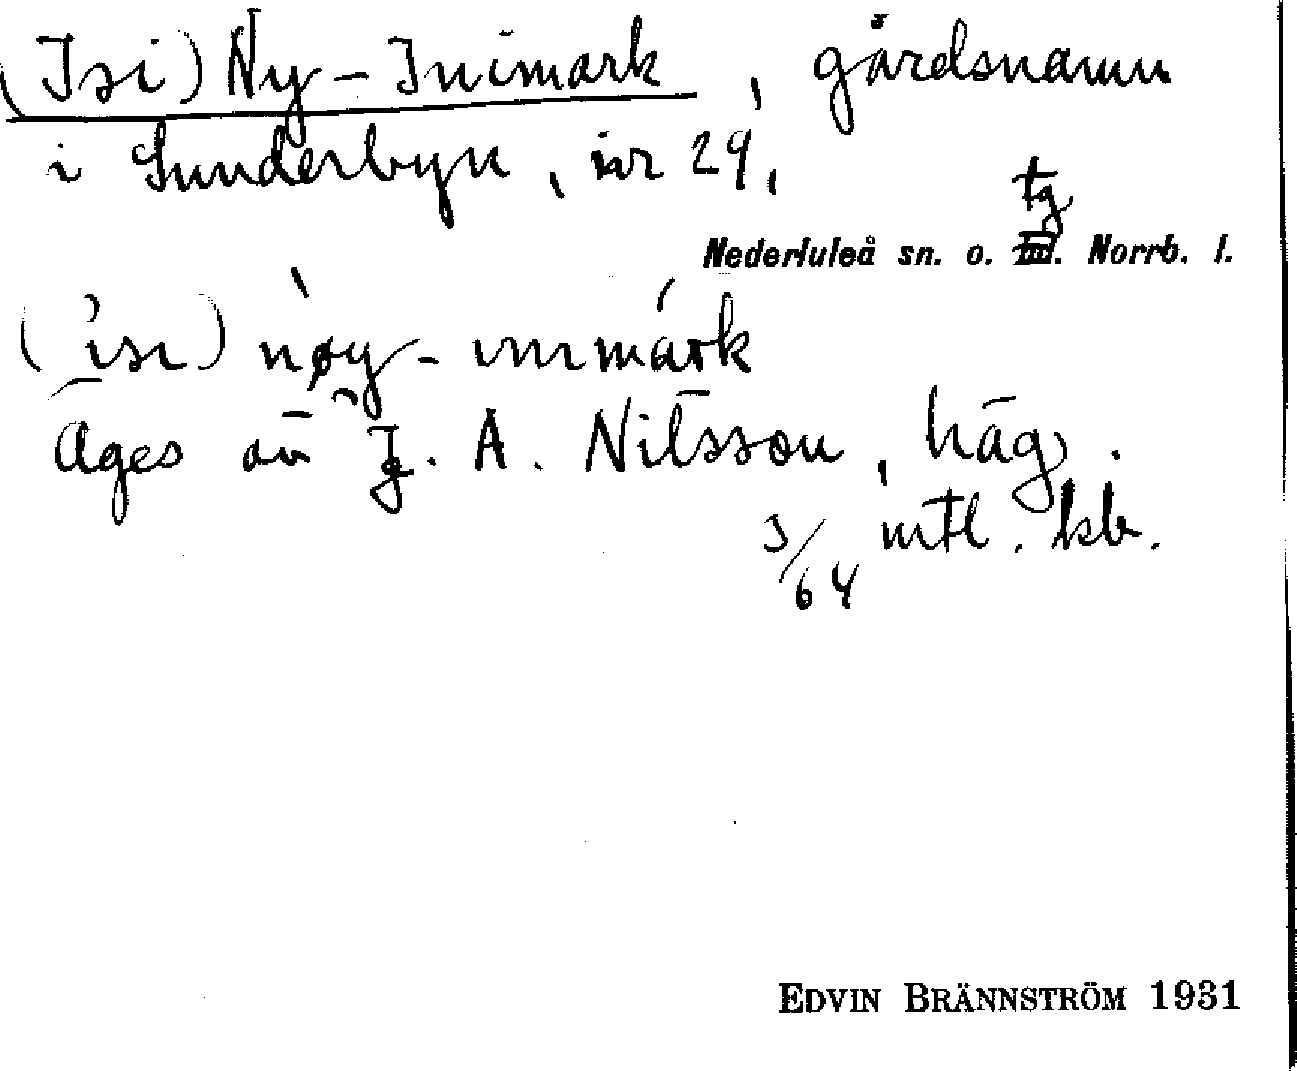 (Isi) Ny-Inimark, gårdsnamn
i Sunderbyn, nr 29,
tg
Nederluleå sn. o. Norrb. l.
(isı) nøy-ınımark
Äges av J. A. Nilsson, häg.
3/64 mtl. kb.
EDVIN BRÄNNSTRÖM 1931